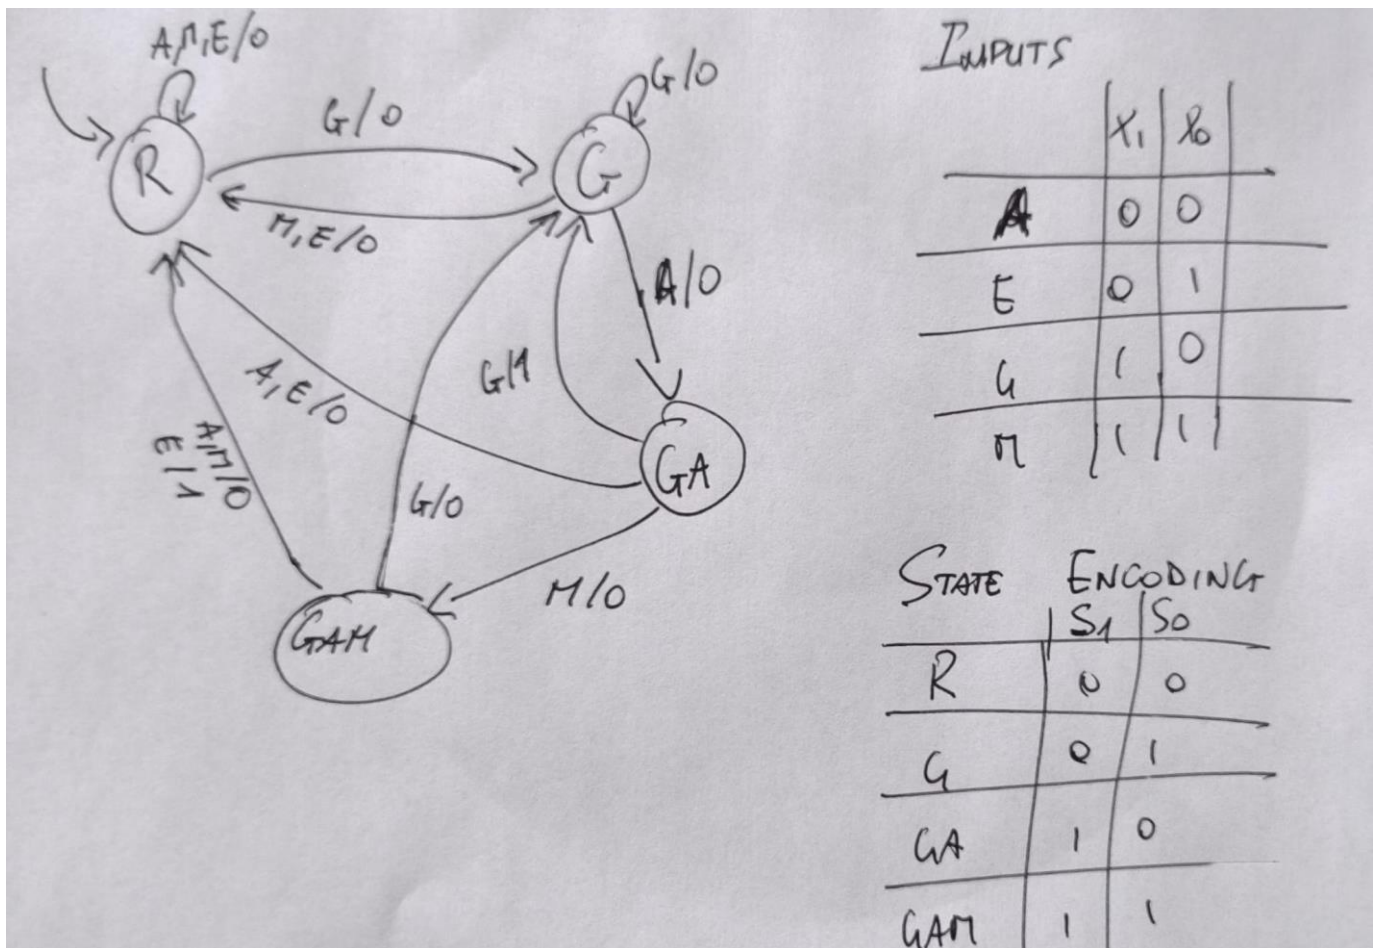 A,M,E/0
G/0
R
G/0
G
M,E/0
A/0
A,E/0
G/1
GA
A,M/0
E/1
G/0
M/0
GAM
INPUTS
X1 X0
A 0 0
E 0 1
G 1 0
M 1 1
STATE ENCODING
S1 S0
R 0 0
G 0 1
GA 1 0
GAM 1 1